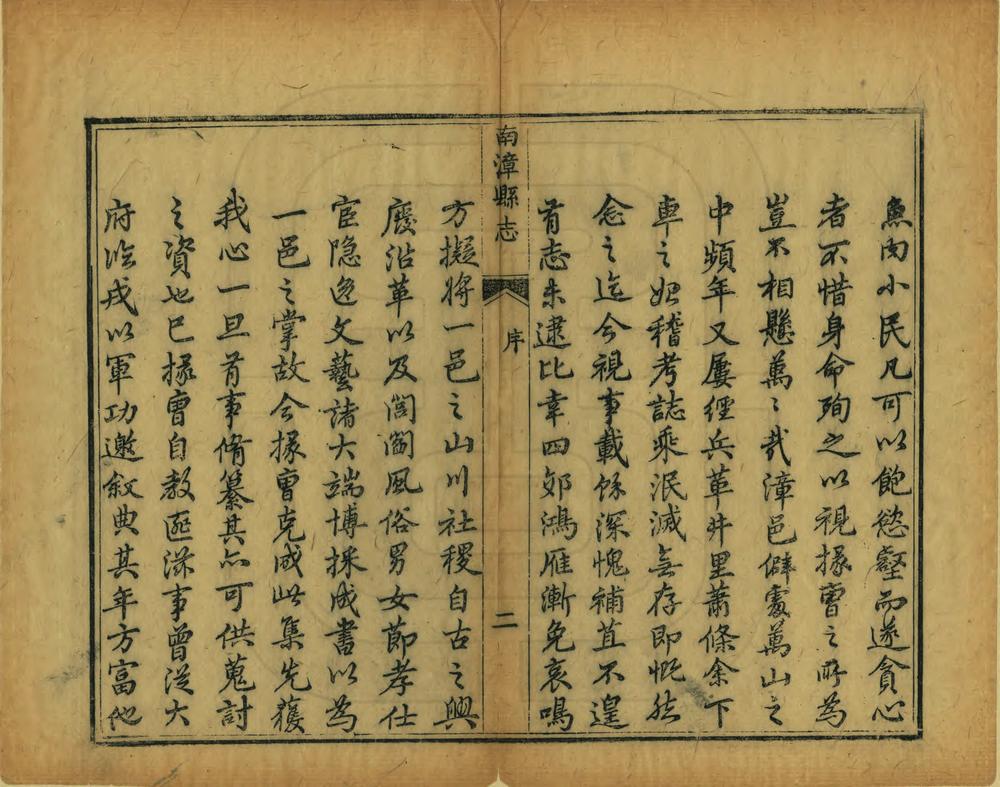 魚肉小民凡可以飽慾壑而遂貪心
者不惜身命殉之以視掾曹之所為
豈不相懸萬〻哉漳邑僻處萬山之
中頻年又屢經兵革井里蕭條余下
車之始稽考誌乘泯滅無存即慨然
念之迄今視事載餘深愧補苴不遑
有志未逮比幸四郊鴻雁漸免哀鳴
南漳縣志
序
二
方擬將一邑之山川社稷自古之興
廢沿革以及閭閻風俗男女節孝仕
宦隱逸文藝諸大端博採成書以為
一邑之掌故今掾曹克成此集先獲
我心一旦有事脩纂其亦可供蒐討
之資也已掾曹自敘匪茲事曾從大
府臨戎以軍功邀敘典其年方富他